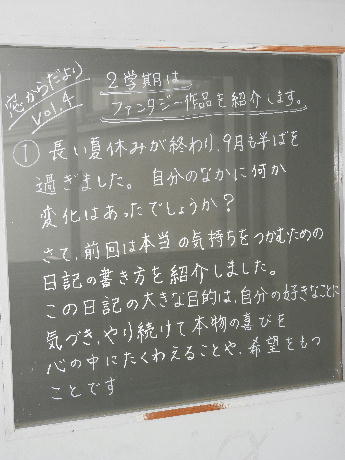 窓からだより
vol.4
2学期は
ファンタジー作品を紹介します。
① 長い夏休みが終わり、9月も半ばを
過ぎました。自分のなかに何か
変化はあったでしょうか?
さて、前回は本当の気持ちをつかむための
日記の書き方を紹介しました。
この日記の大きな目的は、自分の好きなことに
気づき、やり続けて本物の喜びを
心の中にたくわえることや、希望をもつ
ことです